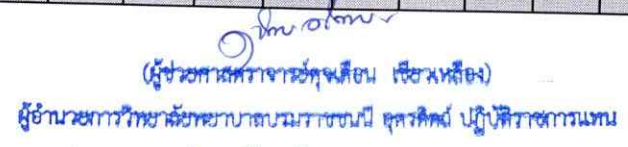 (ผู้ช่วยศาสตราจารย์ดุจเดือน เขียวเหลือง)
ผู้อำนวยการวิทยาลัยพยาบาลบรมราชชนนี อุตรดิตถ์ ปฏิบัติราชการแทน